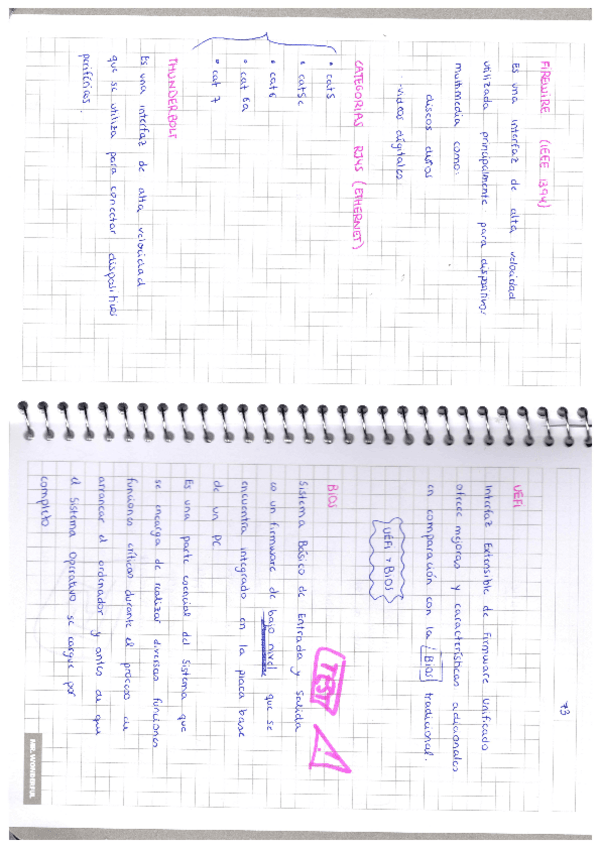 FIREWIRE (IEEE 1394)
Es una interfaz de alta velocidad
utilizada principalmente para dispositivos
multimedia como:
discos duros
videos digitales
CATEGORIAS RJ45 (ETHERNET)
• cat 5
• cat 5e
• cat 6
• cat 6a
• cat 7
THUNDERBOLT
Es una interfaz de alta velocidad
que se utiliza para conectar dispositivos
periféricos.
73
UEFI
Interfaz Extensible de Firmware Unificado
ofrece mejoras y características adicionales
en comparación con la BIOS tradicional.
UEFI > BIOS
BIOS
Sistema Básico de Entrada y Salida
TEST
es un firmware de bajo nivel que se
encuentra integrado en la placa base
de un PC
Es una parte esencial del sistema que
se encarga de realizar diversas funciones
funciones críticas durante el proceso de
arrancar el ordenador y antes de que
el Sistema Operativo se cargue por
completo.
MR.WONDERFUL